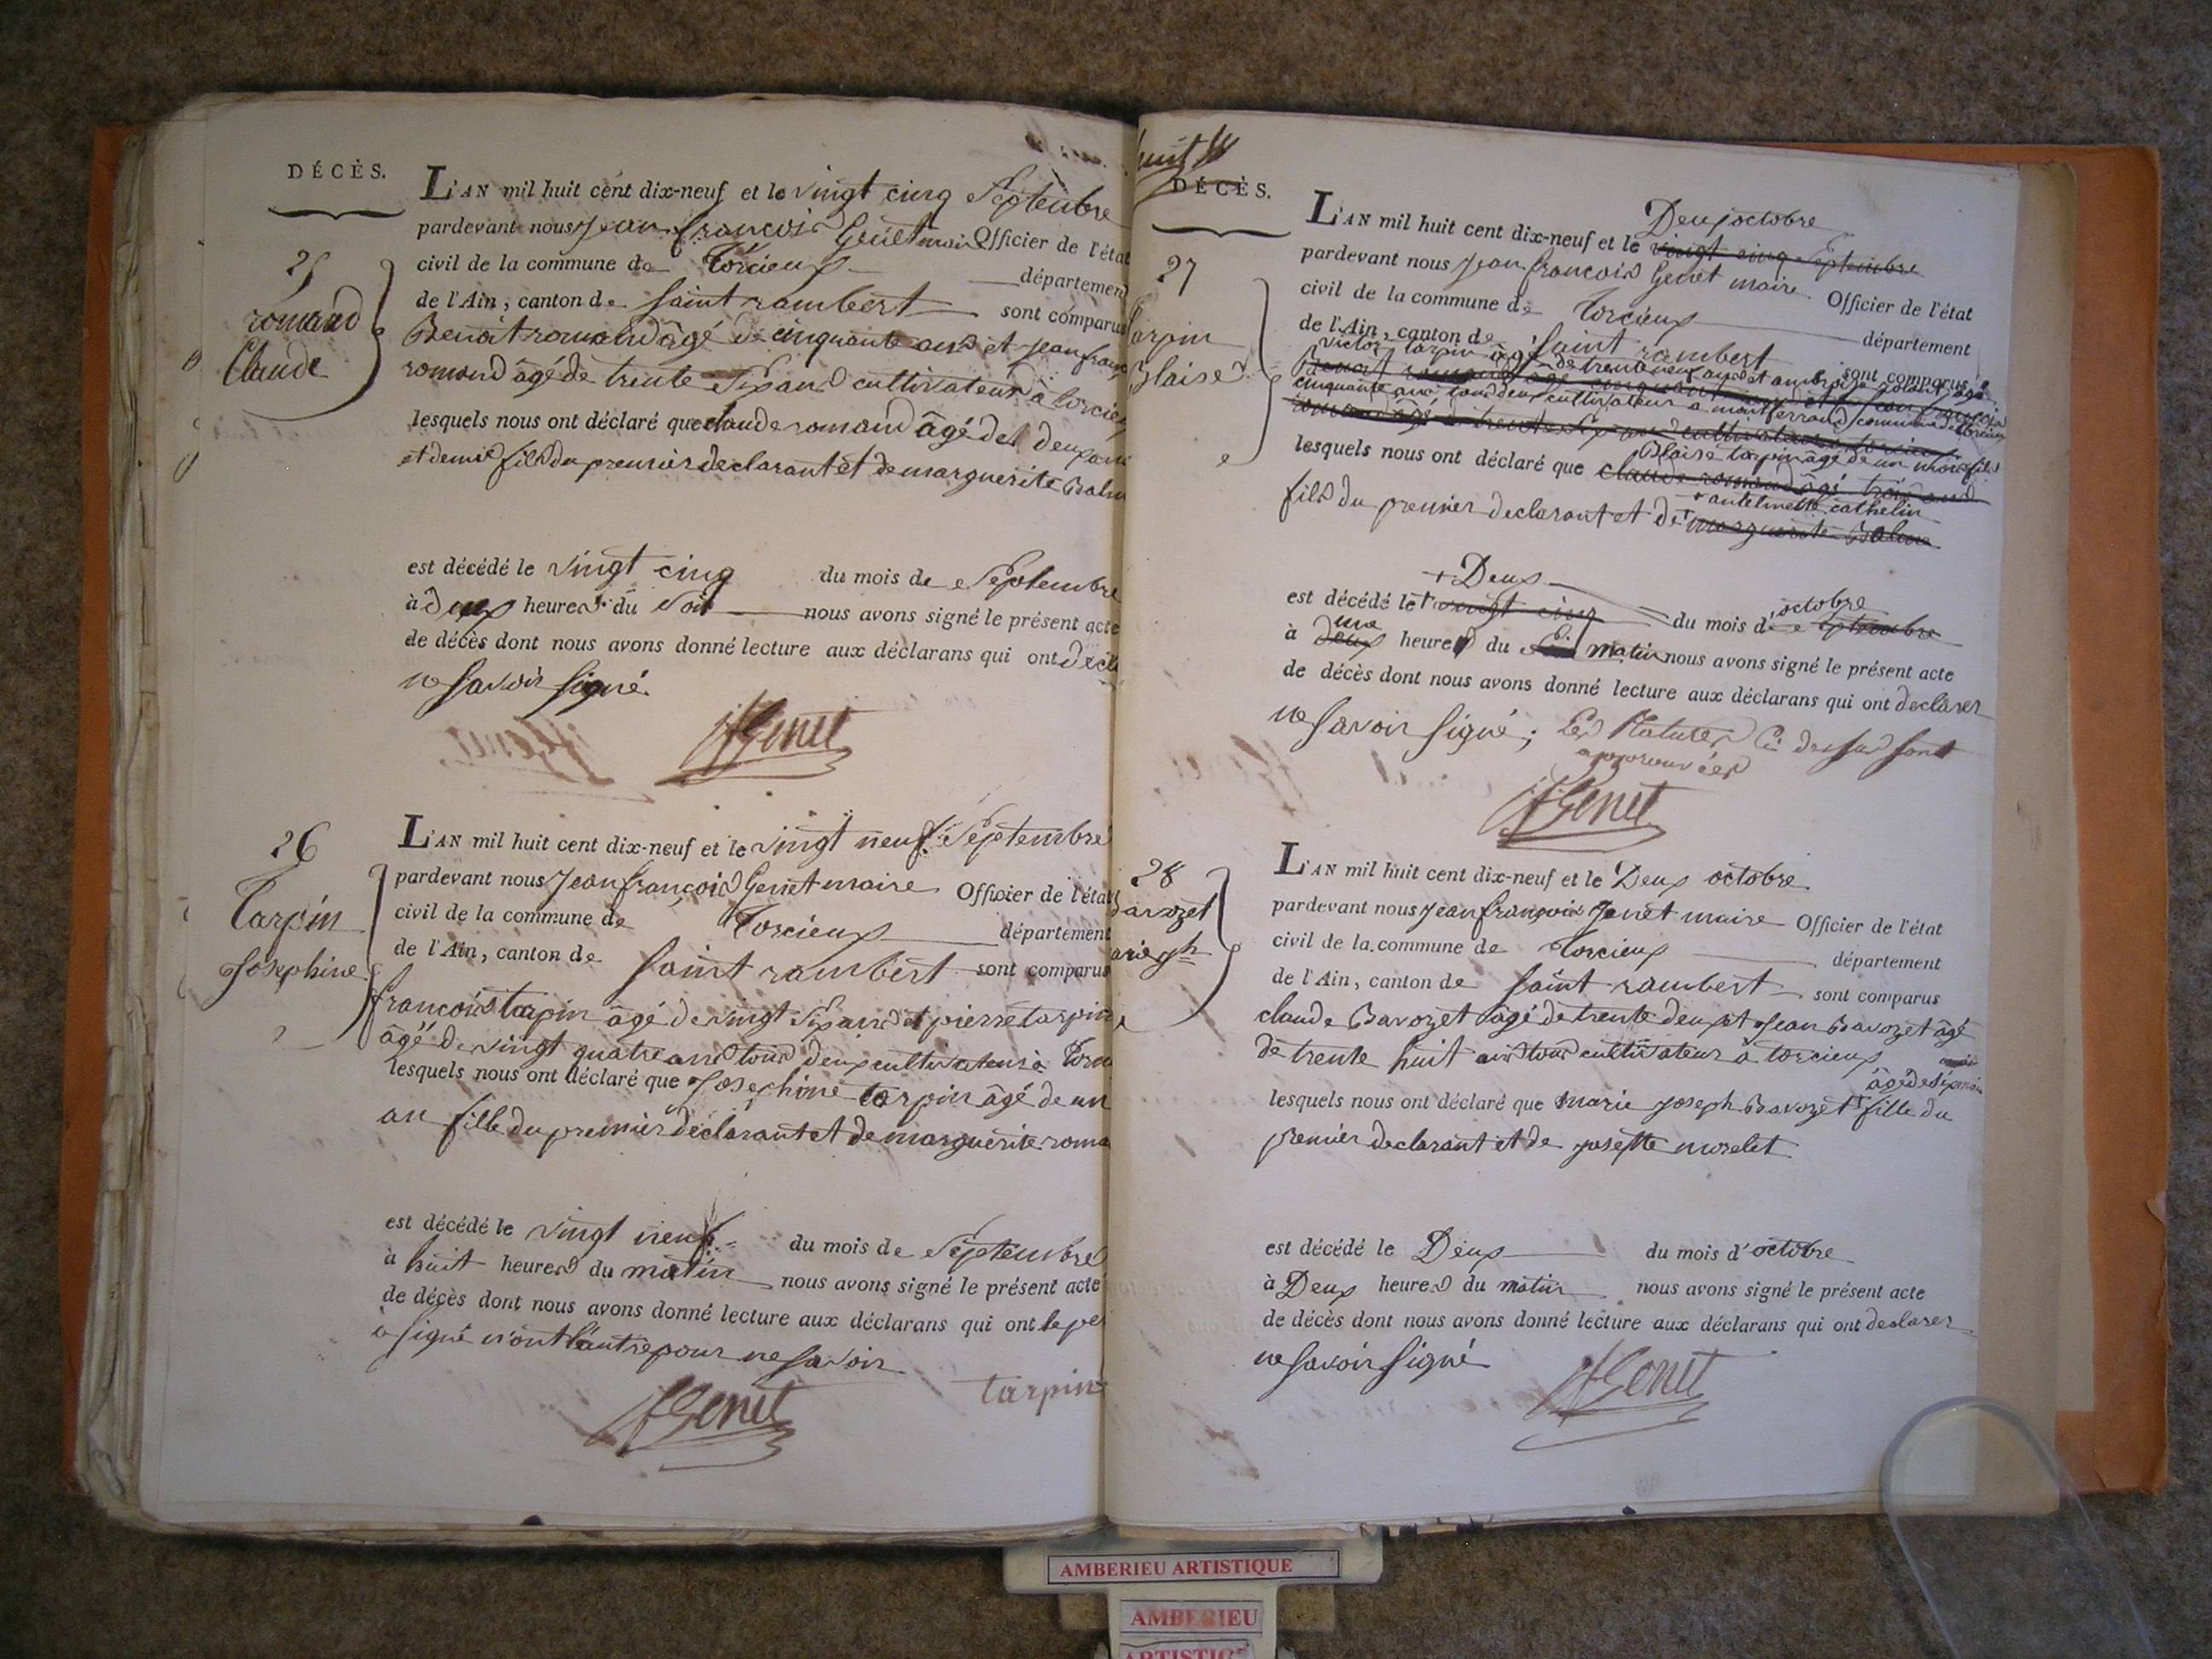 DÉCÈS.
25
romand
Claude
L'AN mil huit cent dix-neuf et le vingt cinq Septembre
pardevant nous Jean françois Genet maire Officier de l'état
civil de la commune de Torcieux départemen
de l'Ain, canton de Saint rambert sont comparus
Benoit romand âgé de cinquante ans et Jean franç
romand âgé de trente Six ans cultivateurs à torcieu
lesquels nous ont déclaré que claude romand âgé de deux ans
et demie fils du premier declarant et de marguerite Balm
est décédé le vingt cinq du mois de Septembre
à deux heures du Soir nous avons signé le présent acte
de décès dont nous avons donné lecture aux déclarans qui ont décla
ne Savoir Signé.
JfGenet
26
Tarpin
Josephine
L'AN mil huit cent dix-neuf et le vingt neuf Septembre
pardevant nous Jean françois Genet maire Officier de l'état
civil de la commune de Torcieux département
de l'Ain, canton de Saint rambert sont comparus
francois tarpin âgé de vingt Six ans et pierre tarpin
âgé de vingt quatre ans tous deux cultivateurs à Torci
lesquels nous ont déclaré que Josephine tarpin âgé de un
an fille du premier déclarant et de marguerite roma
est décédé le vingt neuf du mois de Septembre
à huit heures du matin nous avons signé le présent acte
de décès dont nous avons donné lecture aux déclarans qui ont le per
à Signé non l'autre pour ne Savoir
JfGenet tarpin
huit
DÉCÈS.
27
Tarpin
Blaise
Deux octobre
L'AN mil huit cent dix-neuf et le vingt cinq Septembre
pardevant nous Jean francois Genet maire Officier de l'état
civil de la commune de Torcieux département
de l'Ain, canton de Saint rambert sont comparus
victor tarpin âgé de trente neuf ans et ambroise
Benoit romand âgé cinquante ans et Jean françois
cinquante ans, tous deux cultivateur à montferrand commune de torcieux
romand âgé de trente Six ans cultivateurs à torcieux
Blaise tarpin âgé de un mois fils
lesquels nous ont déclaré que claude romand âgé trois ans
+ antelmette cathelin
fils du premier declarant et de + marguerite Balme
+ Deux
est décédé le + vingt cinq du mois d' octobre Septembre
une
à Deux heures du Soir matin nous avons signé le présent acte
de décès dont nous avons donné lecture aux déclarans qui ont declarer
ne Savoir Signé; Les Ratures Ci dessus Sont
approuvées
JfGenet
28
Bavozet
marie jph
L'AN mil huit cent dix-neuf et le Deux octobre
pardevant nous Jean françois Jenet maire Officier de l'état
civil de la commune de Torcieux département
de l'Ain, canton de Saint rambert sont comparus
claude Bavozet âgé de trente deux et Jean Bavozet âgé
de trente huit ans tous cultivateur à torcieux
âgé de Six mois
lesquels nous ont déclaré que marie joseph Bavozet + fille du
premier declarant et de josephte morelet
est décédé le Deux du mois d'octobre
à Deux heures du matin nous avons signé le présent acte
de décès dont nous avons donné lecture aux déclarans qui ont declarer
ne Savoir Signé
JfGenet
AMBERIEU ARTISTIQUE
AMBERIEU
ARTISTIQ